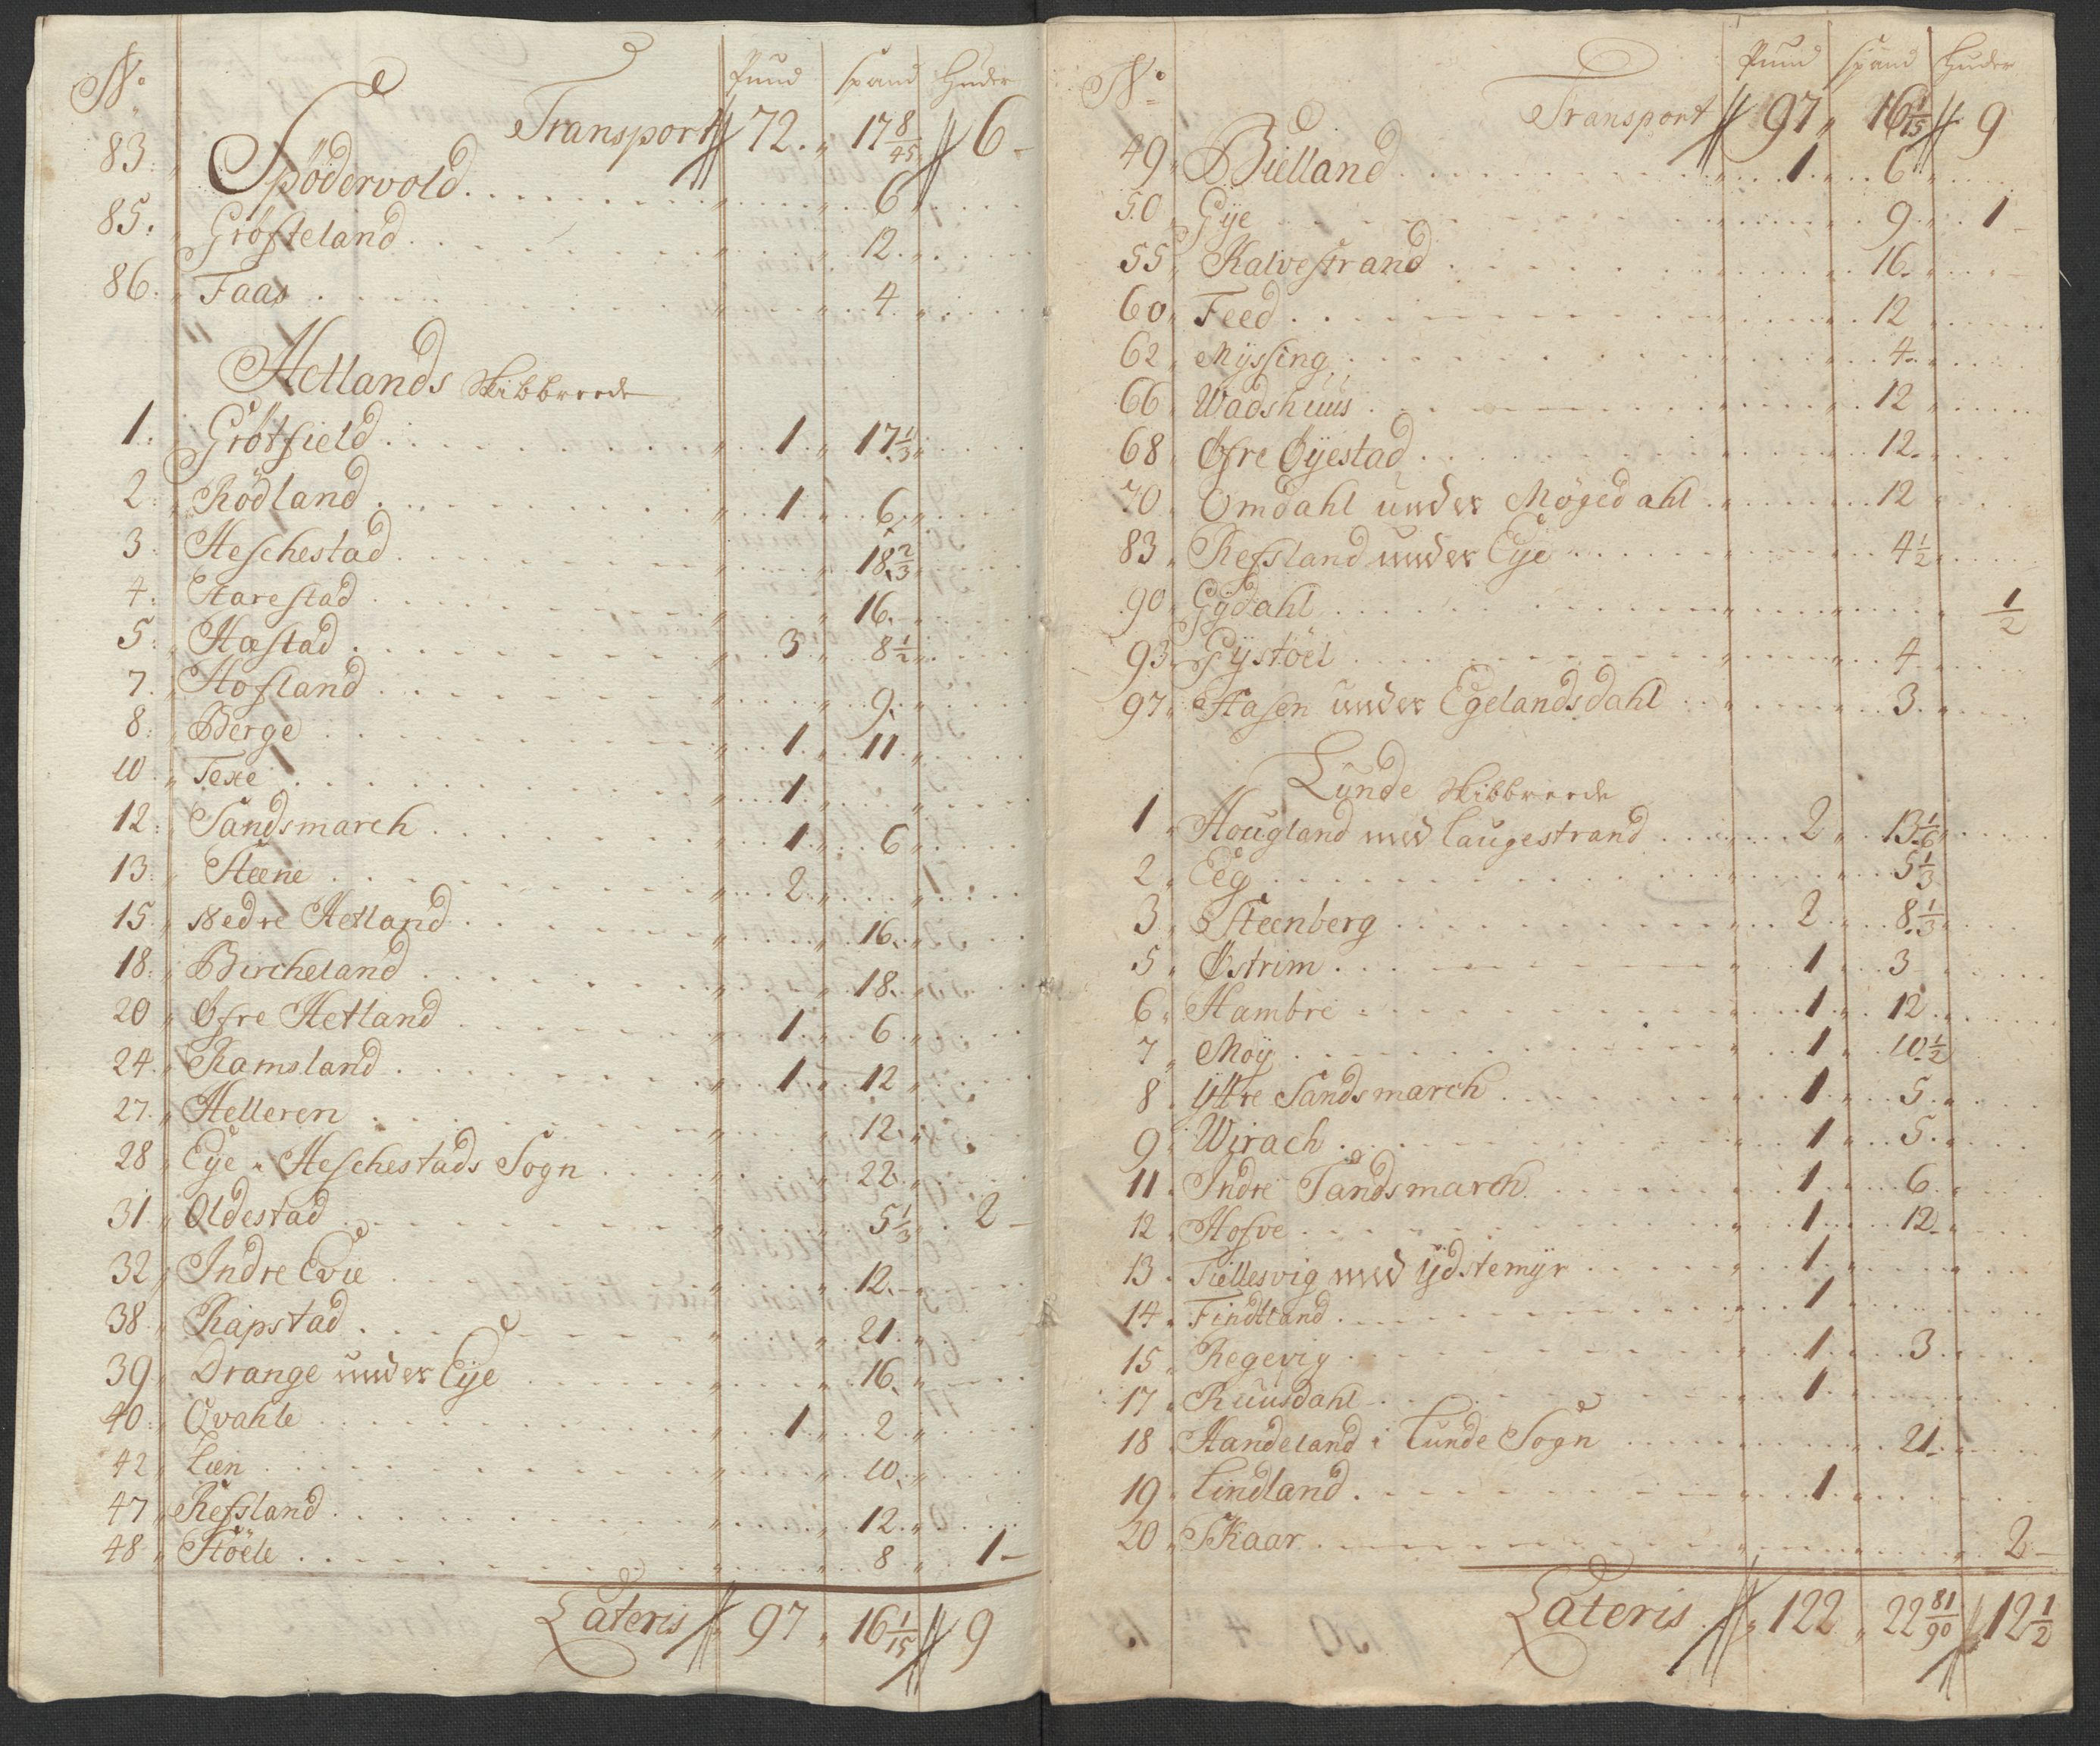 No. Pund Spand Huder
Transport 72. 17 8/45 6
83. Spödervold 6
85. Gröfsteland 12
86. Faas 4
Hetlands Skibbreede
1. Grötfield 1 17 1/3
2. Rödland 1 6
3. Heschestad 18 2/3
4. Starestad 16
5. Hæstad 3 8 1/2
7. Hofland 9
8. Berge 1 11
10 Texe 1
12. Sandsmarch 1 6
13. Steene 2
15. Nedre Hetland 16
18. Bircheland 18
20 Øfre Hetland 1 6
24. Ramsland 1 12
27. Helleren 12
28 Eÿe Heschestads Sogn 22
31. Oldestad 5 1/3 2
32 Indre Evie 12
38 Rapstad 21
39 Drange under Eÿe 16
40 Qvahle 1 2
42 Lien 10
47 Refsland 12
48 Stöele 8 1
Lateris 97 16 1/15 9
No. Pund Spand Huder
Transport 97 16 1/15 9
49 Bielland 1 6
50 Gÿe 9 1
55 Kalvestrand 16
60 Feed 12
62 Mÿssing 4
66 Wadshuus 12
68 Øfre Øÿestad 12
70 Omdahl under Mögedahl 12
83 Refsland under Eÿe 4 1/2
90 Gÿdahl 1/2
93 Gÿstöel 4
97 Stasen under Egelandsdahl 3
Lunde Skibbreede
1 Hougland med Laugestrand 2 13 1/6
2 Eeg 5 1/3
3 Steenberg 2 8 1/3
5 Østrim 1 3
6 Hambre 1 12
7 Moÿ 1 10 1/2
8 Ÿttre Sandsmarch 1 5
9 Wirach 1 5
11 Indre Sandsmarch 1 6
12 Hofve 1 12
13 Tiellesvig med Ÿdstemÿr 1
14 Findtland 1
15 Regevig 1 3
17 Ruusdahl 1
18 Handeland i Lunde Sogn 21
19 Lindland 1
20 Skaar 2
Lateris 122 22 81/90 12 1/2